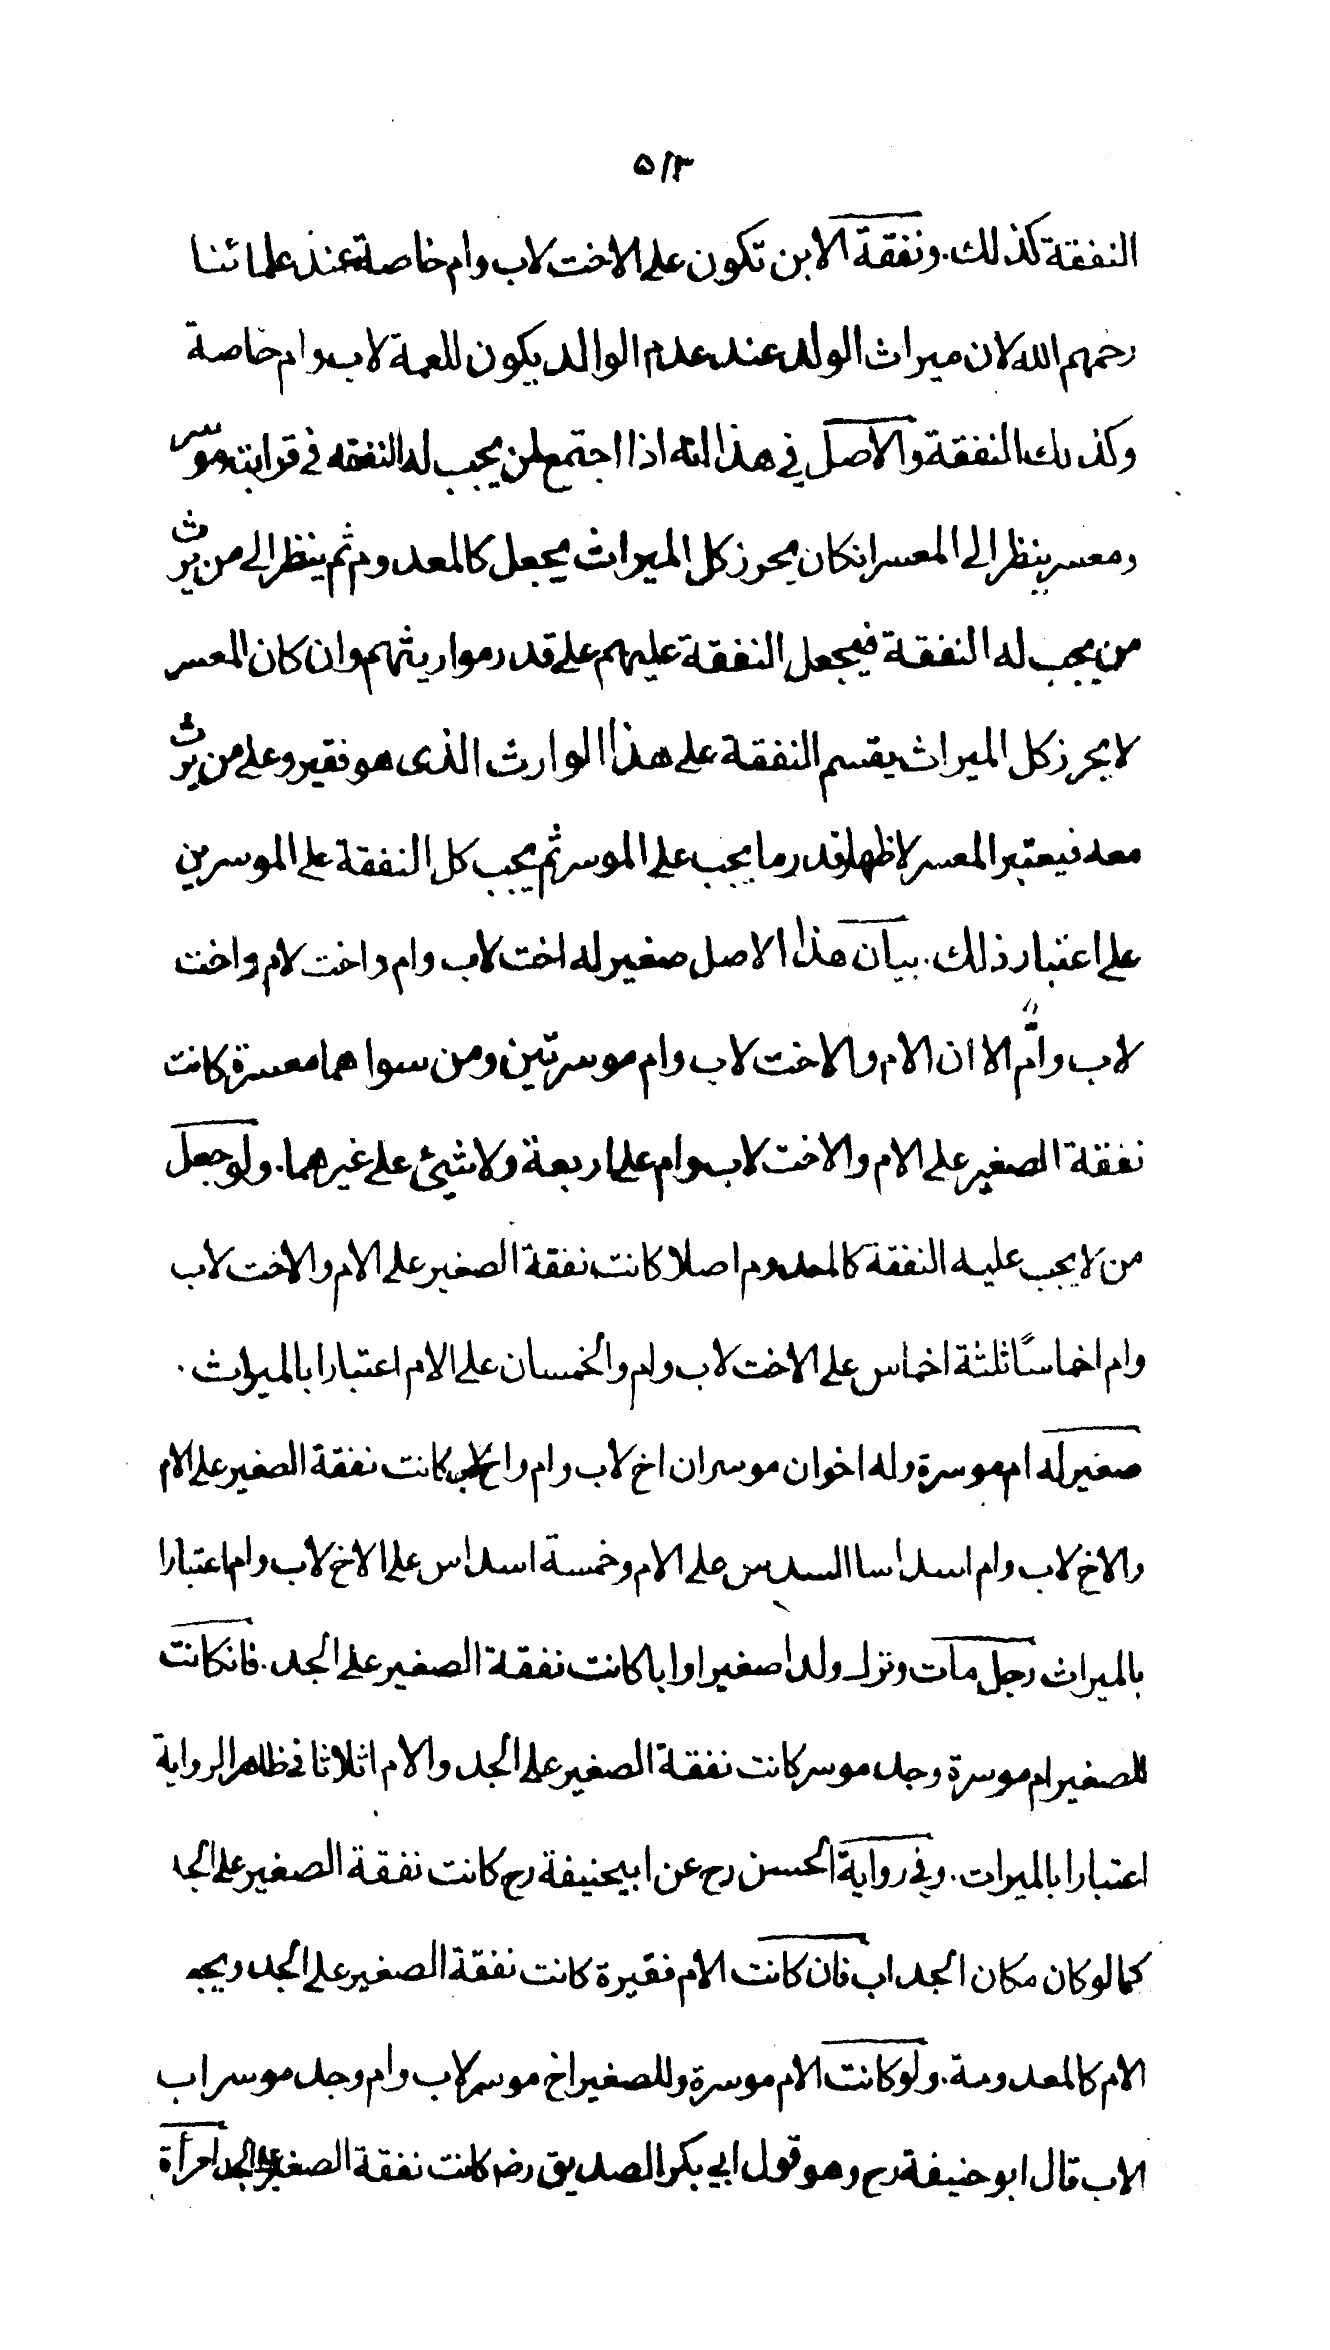 ٥١٣
النفقة كذلك. ونفقة الابن تكون على الاخت لاب وام خاصة عند علمائنا
رحمهم الله لان ميراث الولد عند عدم الوالد يكون للعمة لاب وام خاصة
وكذلك النفقة والاصل في هذا انه اذا اجتمع لمن يجب له النفقه في قرابته موسر
ومعسر ينظر الى المعسر انكان يحرز كل الميراث يجعل كالمعدوم ثم ينظر الى من يرث
من يجب له النفقة فيجعل النفقة عليهم على قدر مواريثهم وان كان المعسر
لا يحرز كل الميراث يقسم النفقة على هذا الوارث الذى هو فقير وعلى من يرث
معه فيعتبر المعسر لاظهار قدر ما يجب على الموسر ثم يجب كل النفقة على الموسرين
على اعتبار ذلك. بيان هذا الاصل صغير له اخت لاب وام واخت لام واخت
لاب وامٌ الا ان الام والاخت لاب وام موسرتين ومن سواهما معسرة كانت
نفقة الصغير على الام والاخت لاب وام على اربعة ولا شيئ على غيرهما. ولو جعل
من لا يجب عليه النفقة كالمعدوم اصلا كانت نفقة الصغير على الام والاخت لاب
وام اخماسًا ثلثة اخماس على الاخت لاب وام والخمسان على الام اعتبارا بالميراث.
صغير له ام موسرة وله اخوان موسران اخ لاب وام واخ لاب كانت نفقة الصغير على الام
والاخ لاب وام اسداسا السدس على الام وخمسة اسداس على الاخ لاب وام اعتبارا
بالميراث رجل مات وترك ولدا صغيرا وابا كانت نفقة الصغير على الجد. فانكانت
للصغير ام موسرة وجد موسر كانت نفقة الصغير على الجد والام اثلاثا في ظاهر الرواية
اعتبارا بالميرات. وفي رواية الحسن رح عن ابيحنيفة رح كانت نفقة الصغير على الجد
كما لو كان مكان الجد اب فان كانت الام فقيرة كانت نفقة الصغير على الجد ويجعل
الام كالمعدومة. ولو كانت الام موسرة وللصغير اخ موسر لاب وام وجد موسر اب
الاب قال ابو حنيفة رح وهو قول ابي بكر الصديق رض كانت نفقة الصغير على الجد امرأة